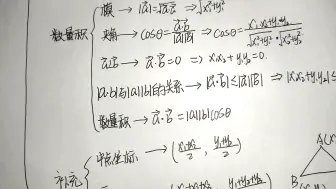 模 → |a⃗|=√a⃗·a⃗ ⇒ √x²+y²
数量积
夹角 → cosθ= a⃗·b⃗/|a⃗||b⃗| ⇒ cosθ= x₁x₂+y₁y₂/√x₁²+y₁²·√x₂²+y₂²
a⃗⊥b⃗ → a⃗·b⃗=0 ⇒ x₁x₂+y₁y₂=0.
|a·b|与|a||b|的关系 → |a⃗·b⃗|≤|a⃗||b⃗| ⇒ |x₁x₂+y₁y₂|≤
数量积 → a⃗·b⃗=|a||b|cosθ
中点坐标 → (x₁+x₂/2, y₁+y₂/2)
补充
A(x
B